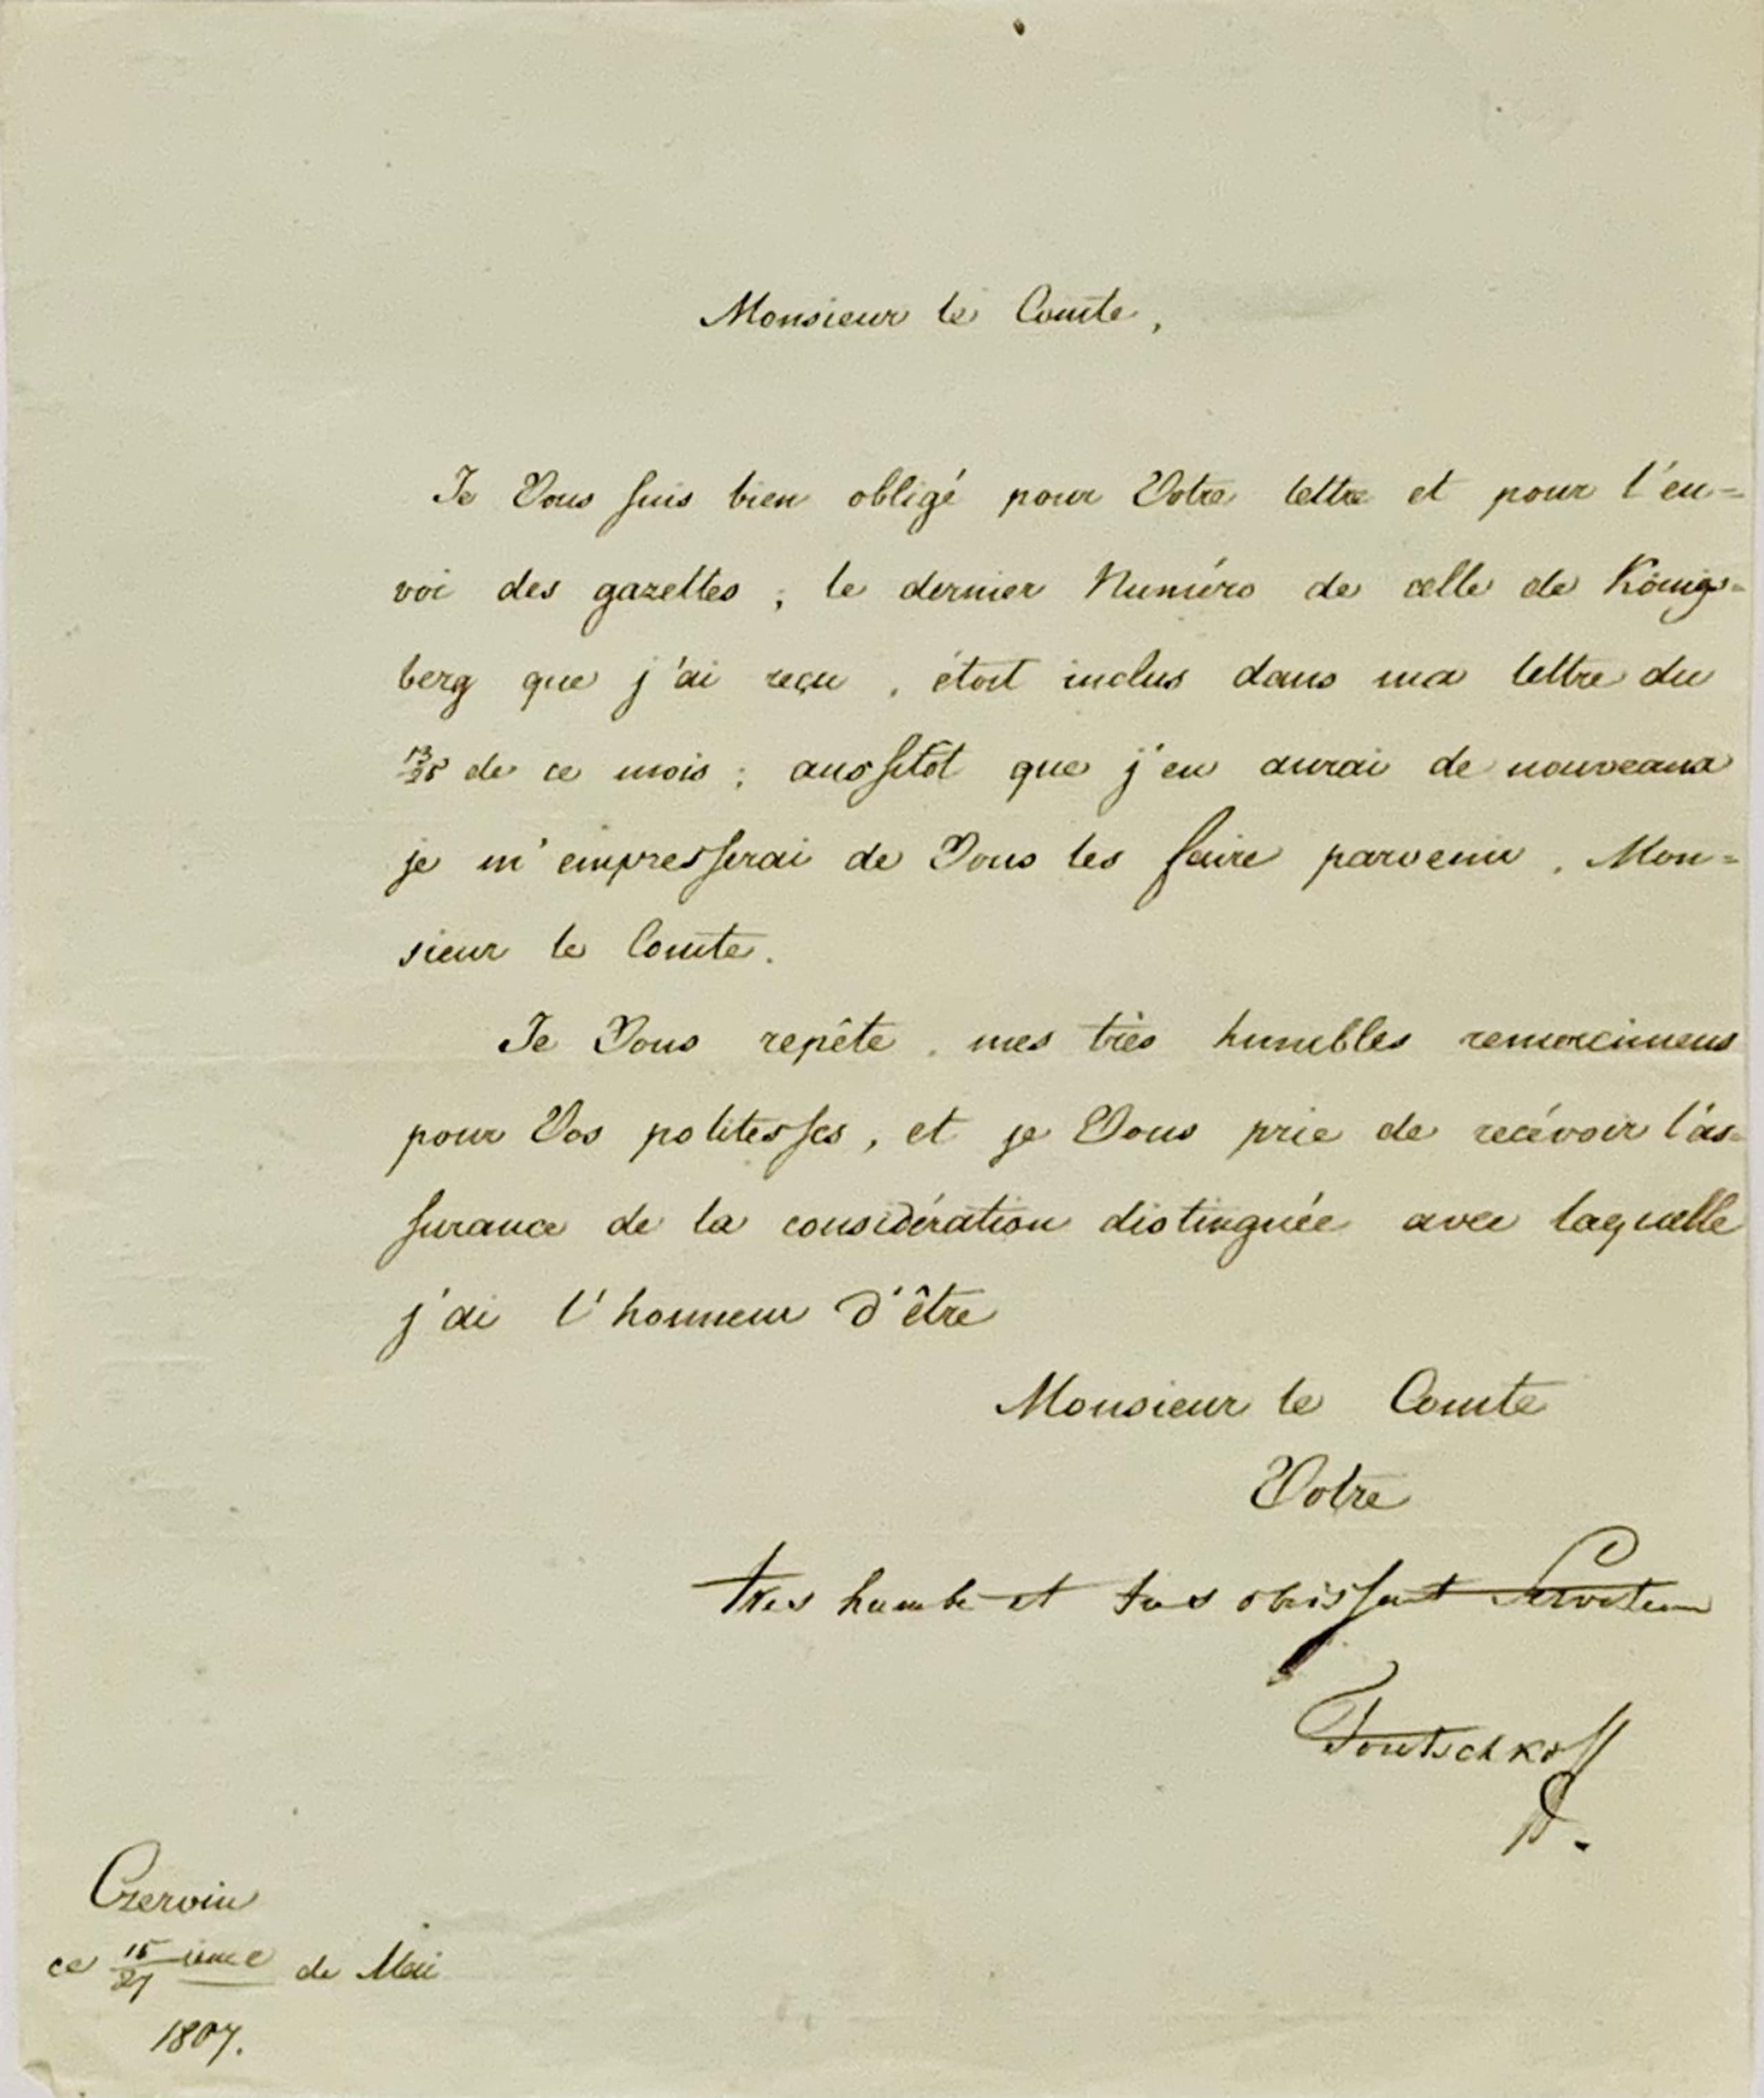 Monsieur le Comte,
Je Vous suis bien obligé pour Votre lettre et pour l'en=
voi des gazettes ; le dernier Numéro de celle de Königs=
berg que j'ai reçu , étoit inclus dans ma lettre du
13/25 de ce mois ; aussitôt que j'en aurai de nouveaux
je m'empresserai de Vous les faire parvenir , Mon=
sieur le Comte.
Je Vous repête , mes très humbles remercimens
pour Vos politesses , et je Vous prie de recévoir l'as=
surance de la considération distinguée avec laquelle
j'ai l'honneur d'être
Monsieur le Comte
Votre
tres humble et tres obeissant Serviteur
Toutschkoff
Czervin
ce 15/27 ieme de Mai
1807.